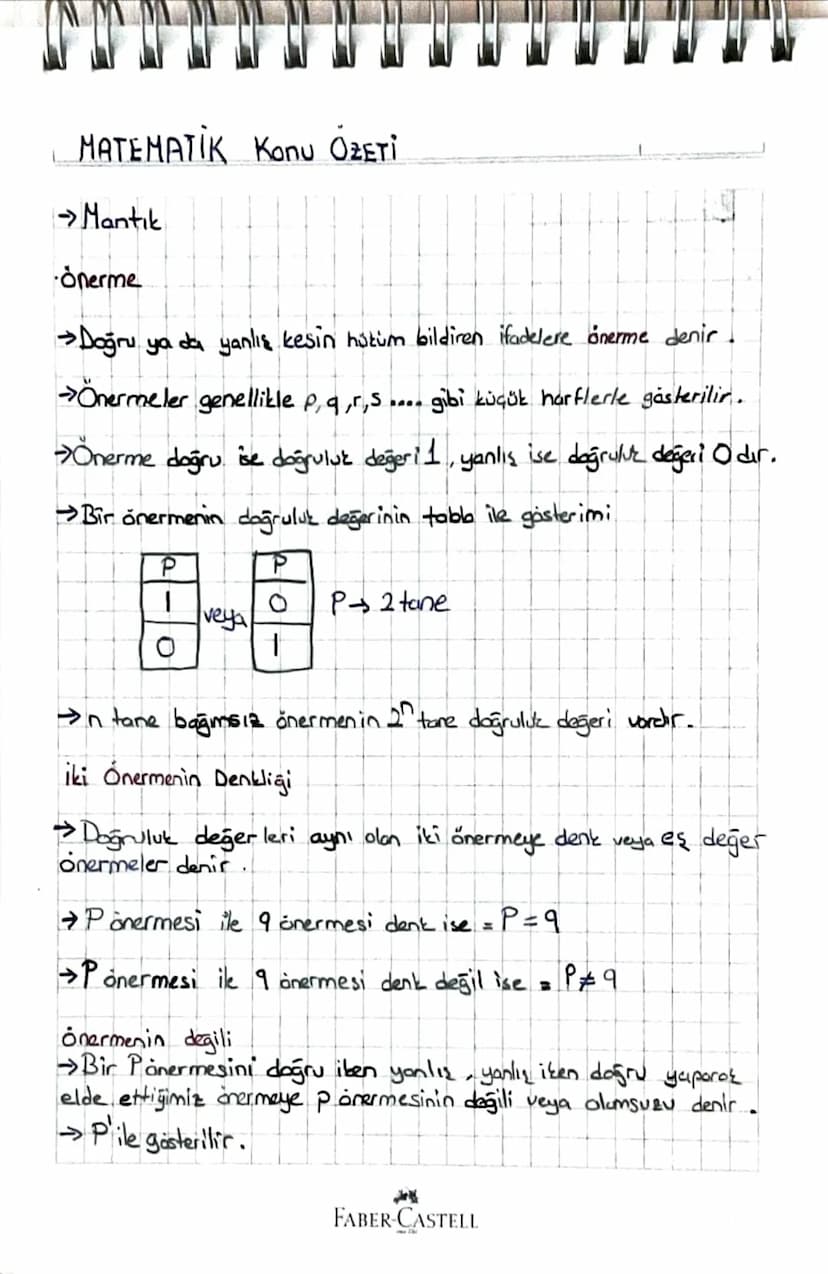 MATEMATİK Konu ÖZETİ
→ Mantık
· Önerme
→ Doğru ya da yanlış kesin hüküm bildiren ifadelere önerme denir.
→ Önermeler genellikle p, q, r, s .... gibi küçük harflerle gösterilir.
→ Önerme doğru ise doğruluk değeri 1, yanlış ise doğruluk değeri 0 dır.
→ Bir önermenin doğruluk değerinin tablo ile gösterimi
P P
1 veya 0 P → 2 tane
0 1
→ n tane bağımsız önermenin 2ⁿ tane doğruluk değeri vardır.
İki Önermenin Denkliği
→ Doğruluk değerleri aynı olan iki önermeye denk veya eş değer
önermeler denir.
→ P önermesi ile q önermesi denk ise = P = q
→ P önermesi ile q önermesi denk değil ise = P ≠ q
önermenin değili
→ Bir P önermesini doğru iken yanlış, yanlış iken doğru yaparak
elde ettiğimiz önermeye p önermesinin değili veya olumsuzu denir.
→ P' ile gösterilir.
FABER-CASTELL